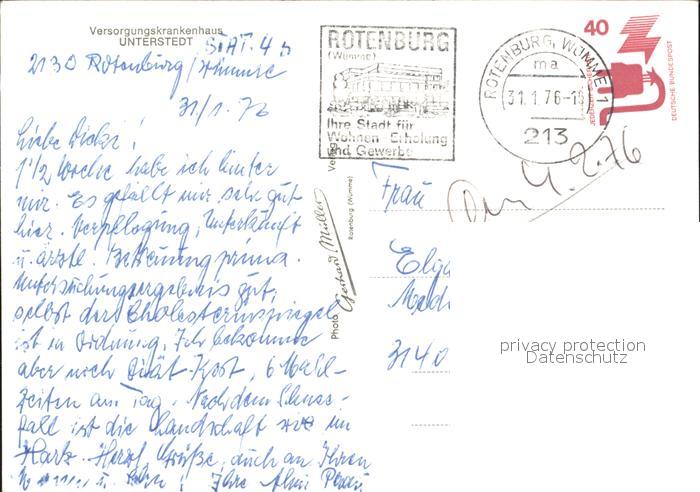 Versorgungskrankenhaus
UNTERSTEDT STAT. 4 b
2130 Rotenburg/Wümme
31/1.76
Liebe
1 1/2 Woche habe ich hinter
mir. Es gefällt mir sehr gut
hier. Verpflegung, Unterkunft
u. ärztl. Betreuung prima.
Untersuchungsergebnis gut,
selbst der Cholesterinspiegel
ist in Ordnung. Ich bekomme
aber noch Diät-Kost, 6 Mahl-
zeiten am Tag. Nach dem Schnee-
fall ist die Landschaft wie im
Harz. Herzl. Grüße, auch an Ihren
u. Ihre
ROTENBURG
(Wümme)
Ihre Stadt für
Wohnen Erholung
und Gewerbe
ROTENBURG, WÜMME 1
ma
31.1.76-13
213
40
JEDERZEIT SICHERHEIT
DEUTSCHE BUNDESPOST
4.2.76
Verlag
Photo Gerhard Müller
Rotenburg (Wümme)
Frau
3140
privacy protection
Datenschutz